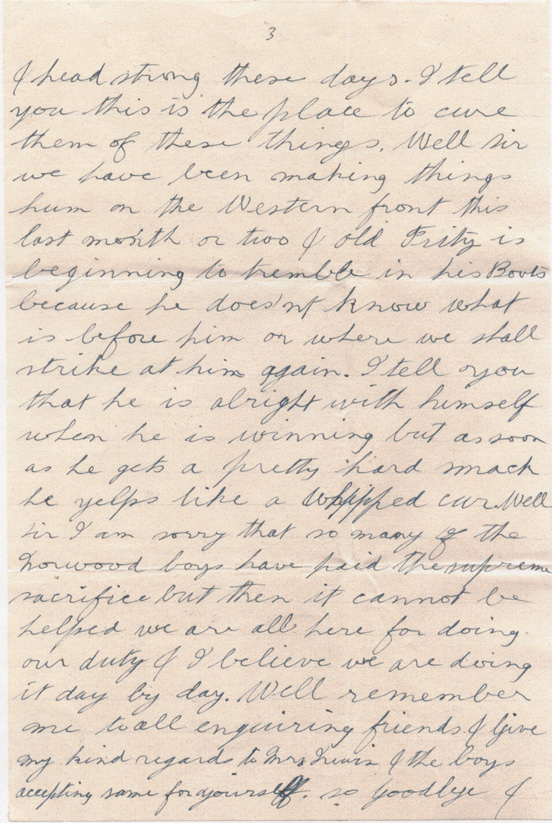 3
& head strong these days. I tell
you this is the place to cure
them of these things. Well sir
we have been making things
hum on the Western front this
last month or two & old Fritz is
beginning to tremble in his Boots
because he does'nt know what
is before him or where we shall
strike at him again. I tell you
that he is alright with himself
when he is winning but as soon
as he gets a pretty hard smack
he yelps like a whipped cur Well
sir I am sorry that so many of the
Norwood boys have paid the supreme
sacrifice but then it cannot be
helped we are all here for doing
our duty & I believe we are doing
it day by day. Well remember
me to all enquiring friends & Give
my kind regards to Mrs Irwin & the boys
accepting same for yourself. so Goodbye &